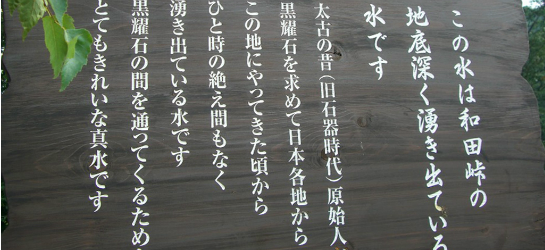 この水は和田峠の
地底深く湧き出ている
水です
太古の昔(旧石器時代)原始人
黒耀石を求めて日本各地から
この地にやってきた頃から
ひと時の絶え間もなく
湧き出ている水です
黒耀石の間を通ってくるため
とてもきれいな真水です